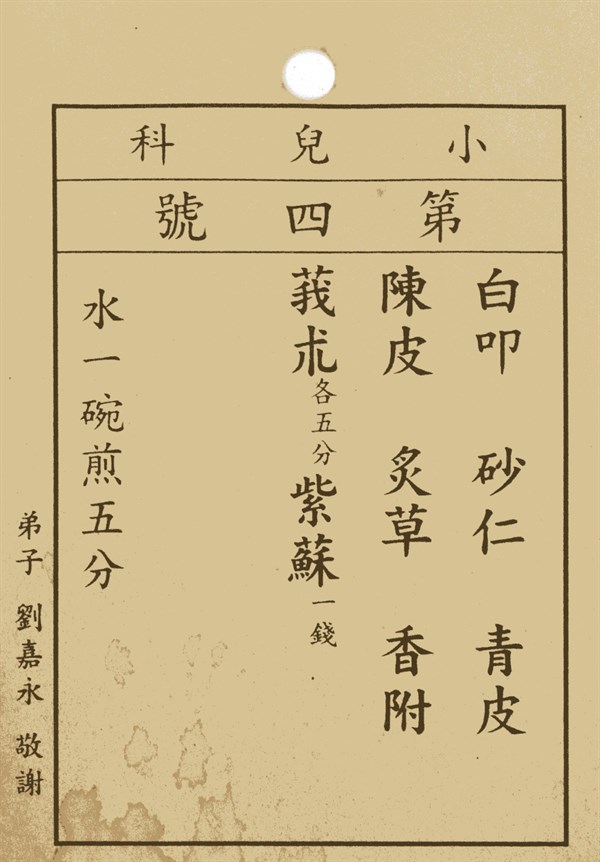 小兒科
第四號
白叩 砂仁 青皮
陳皮 炙草 香附
莪朮各五分 紫蘇一錢
水一碗煎五分
弟子 劉嘉永 敬謝